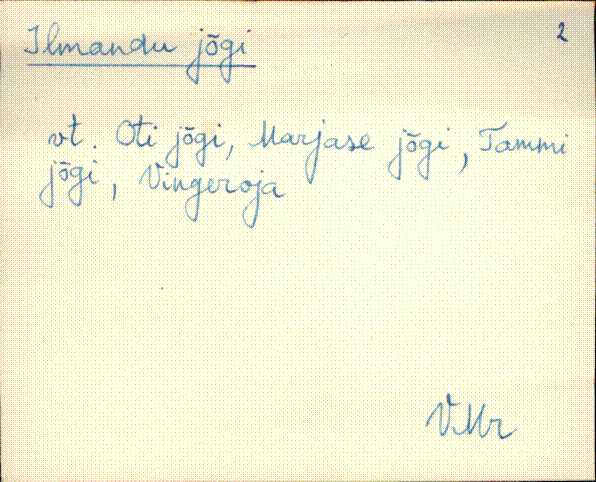 Ilmandu jõgi 2
vt. Oti jõgi, Marjase jõgi, Tammi
jõgi, Vingeroja
VMr